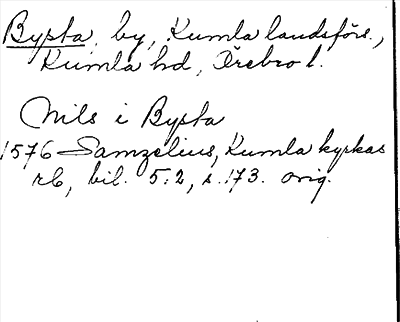 Bysta, by, Kumla landsförs.,
Kumla hd, Örebro l.
Nils i Bysta
1576 Samzelius, Kumla kyrkas
rb, bil. 5:2, s. 173. orig.